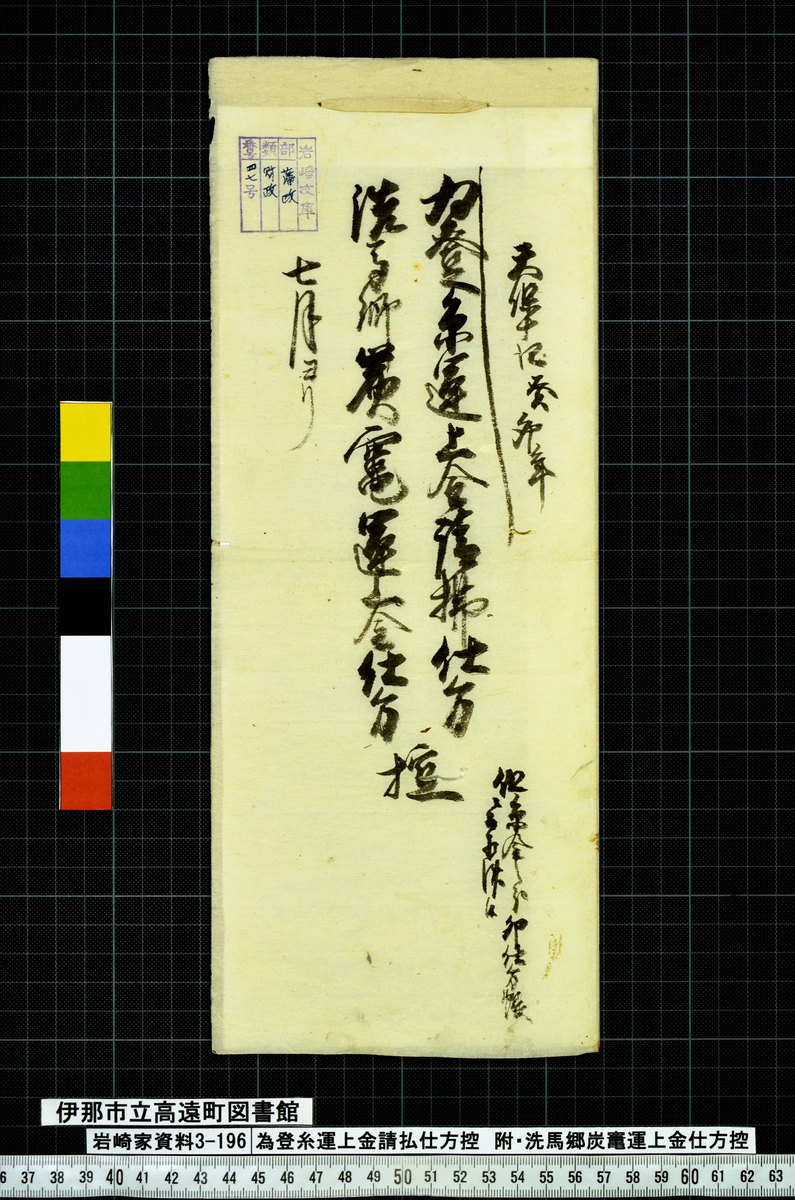 天保十四癸卯年
為登糸運上金請拂仕方
洗馬郷炭竃運上金仕方
控
七月ヨリ
岩崎文庫
部 藩政
類 財政
番 四七号
伊那市立高遠町図書館
岩崎家資料3-196 為登糸運上金請払仕方控 附・洗馬郷炭竃運上金仕方控
6 37 38 39 40 41 42 43 44 45 46 47 48 49 50 51 52 53 54 55 56 57 58 59 60 61 62 63